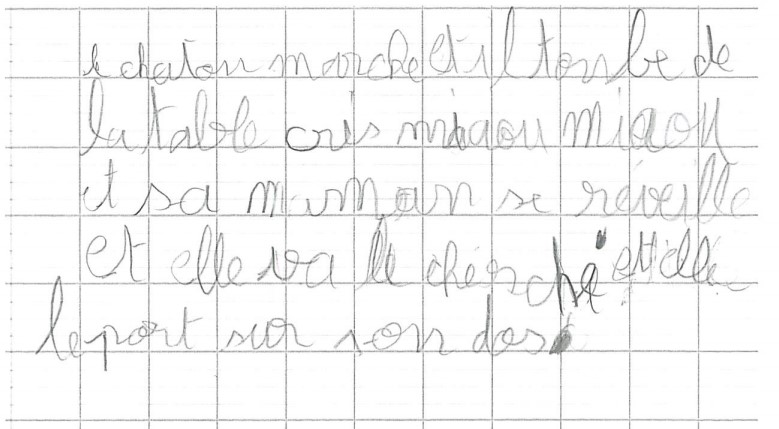 le chaton marche et il tombe de
la table cris miaou miaou
et sa maman se réveille
et elle va le cherché et elle
le port sur son dos